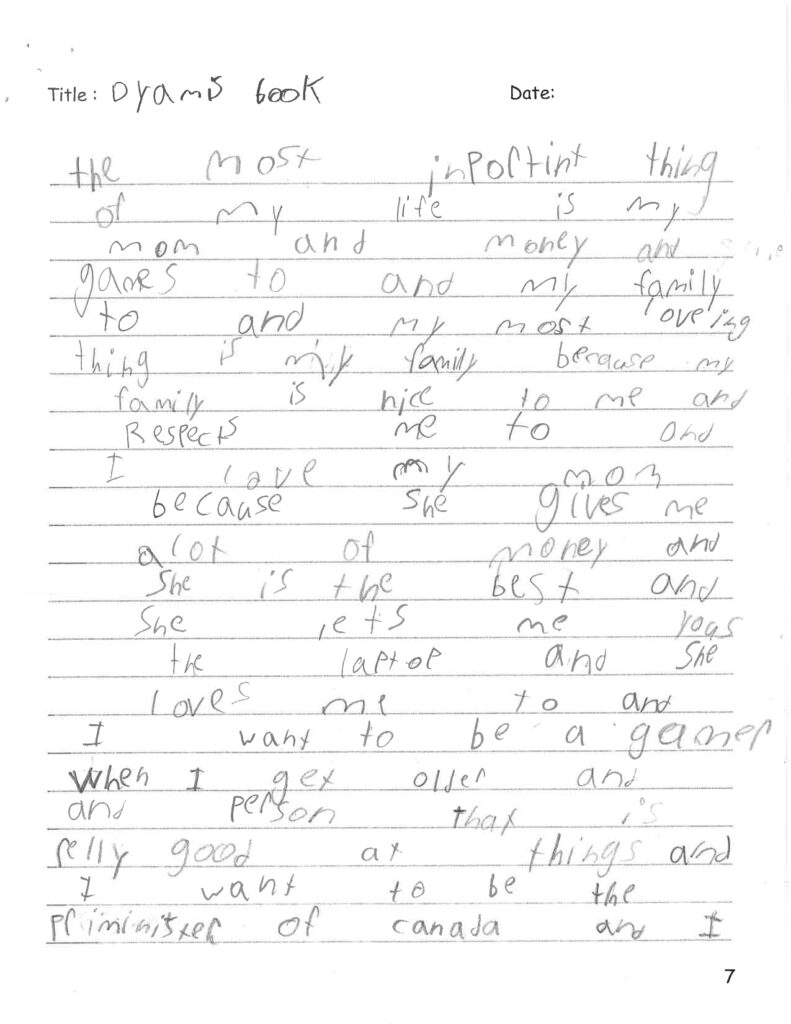 Title: Dyamis book Date:
the most inportint thing
of my life is my
mom and money and
games to and my family
to and my most loveing
thing is my family because my
family is nice to me and
Respects me to and
I love my mom
because she gives me
alot of money and
She is the best and
She lets me yous
the laptop and She
loves me to and
I want to be a gamer
When I get older and
and person that is
relly good at things and
I want to be the
priminister of canada and I
7